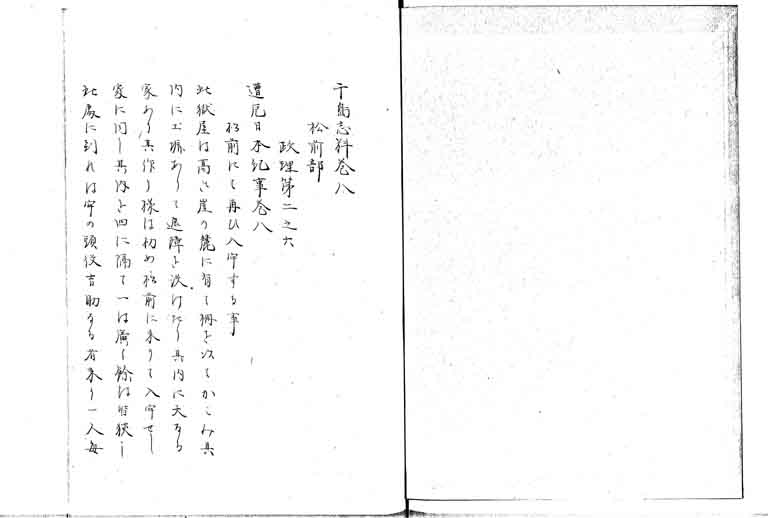 千島志料巻八
松前部
政理第二之六
遭厄日本紀事巻八
松前にて再ひ入牢する事
此獄屋は高き崖の麓に有て柵を以てかこみ其
内に土塀ありて遮障を設けたり其内に大なる
家あり其作り様は初め松前に来りて入牢せし
家に同し其内を四に隔て一は廣く餘は皆狭し
此處に到れは牢の頭役吉助なる者来り一人毎